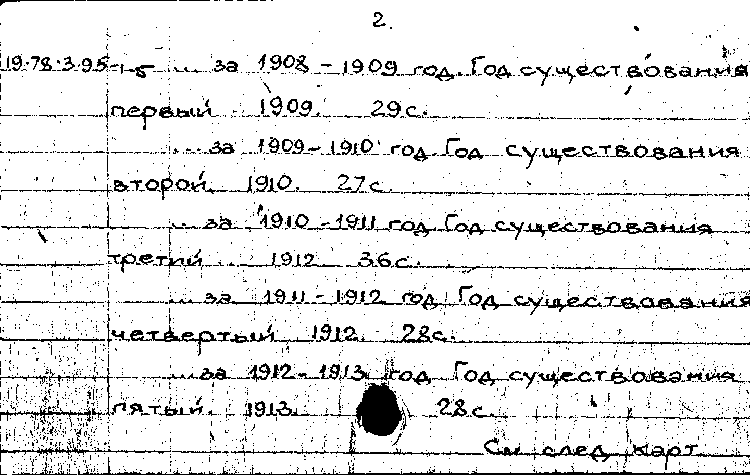 2.
19.78.3.95-1-5 ... за 1908 - 1909 год. Год существования
первый. 1909. 29с.
... за 1909-1910 год. Год существования
второй. 1910. 27с.
... за 1910-1911 год. Год существования
третий. 1912 36с.
... за 1911-1912 год. Год существования
четвертый 1912. 28с.
... за 1912-1913 год. Год существования
пятый. 1913. 28с.
См. след. карт.